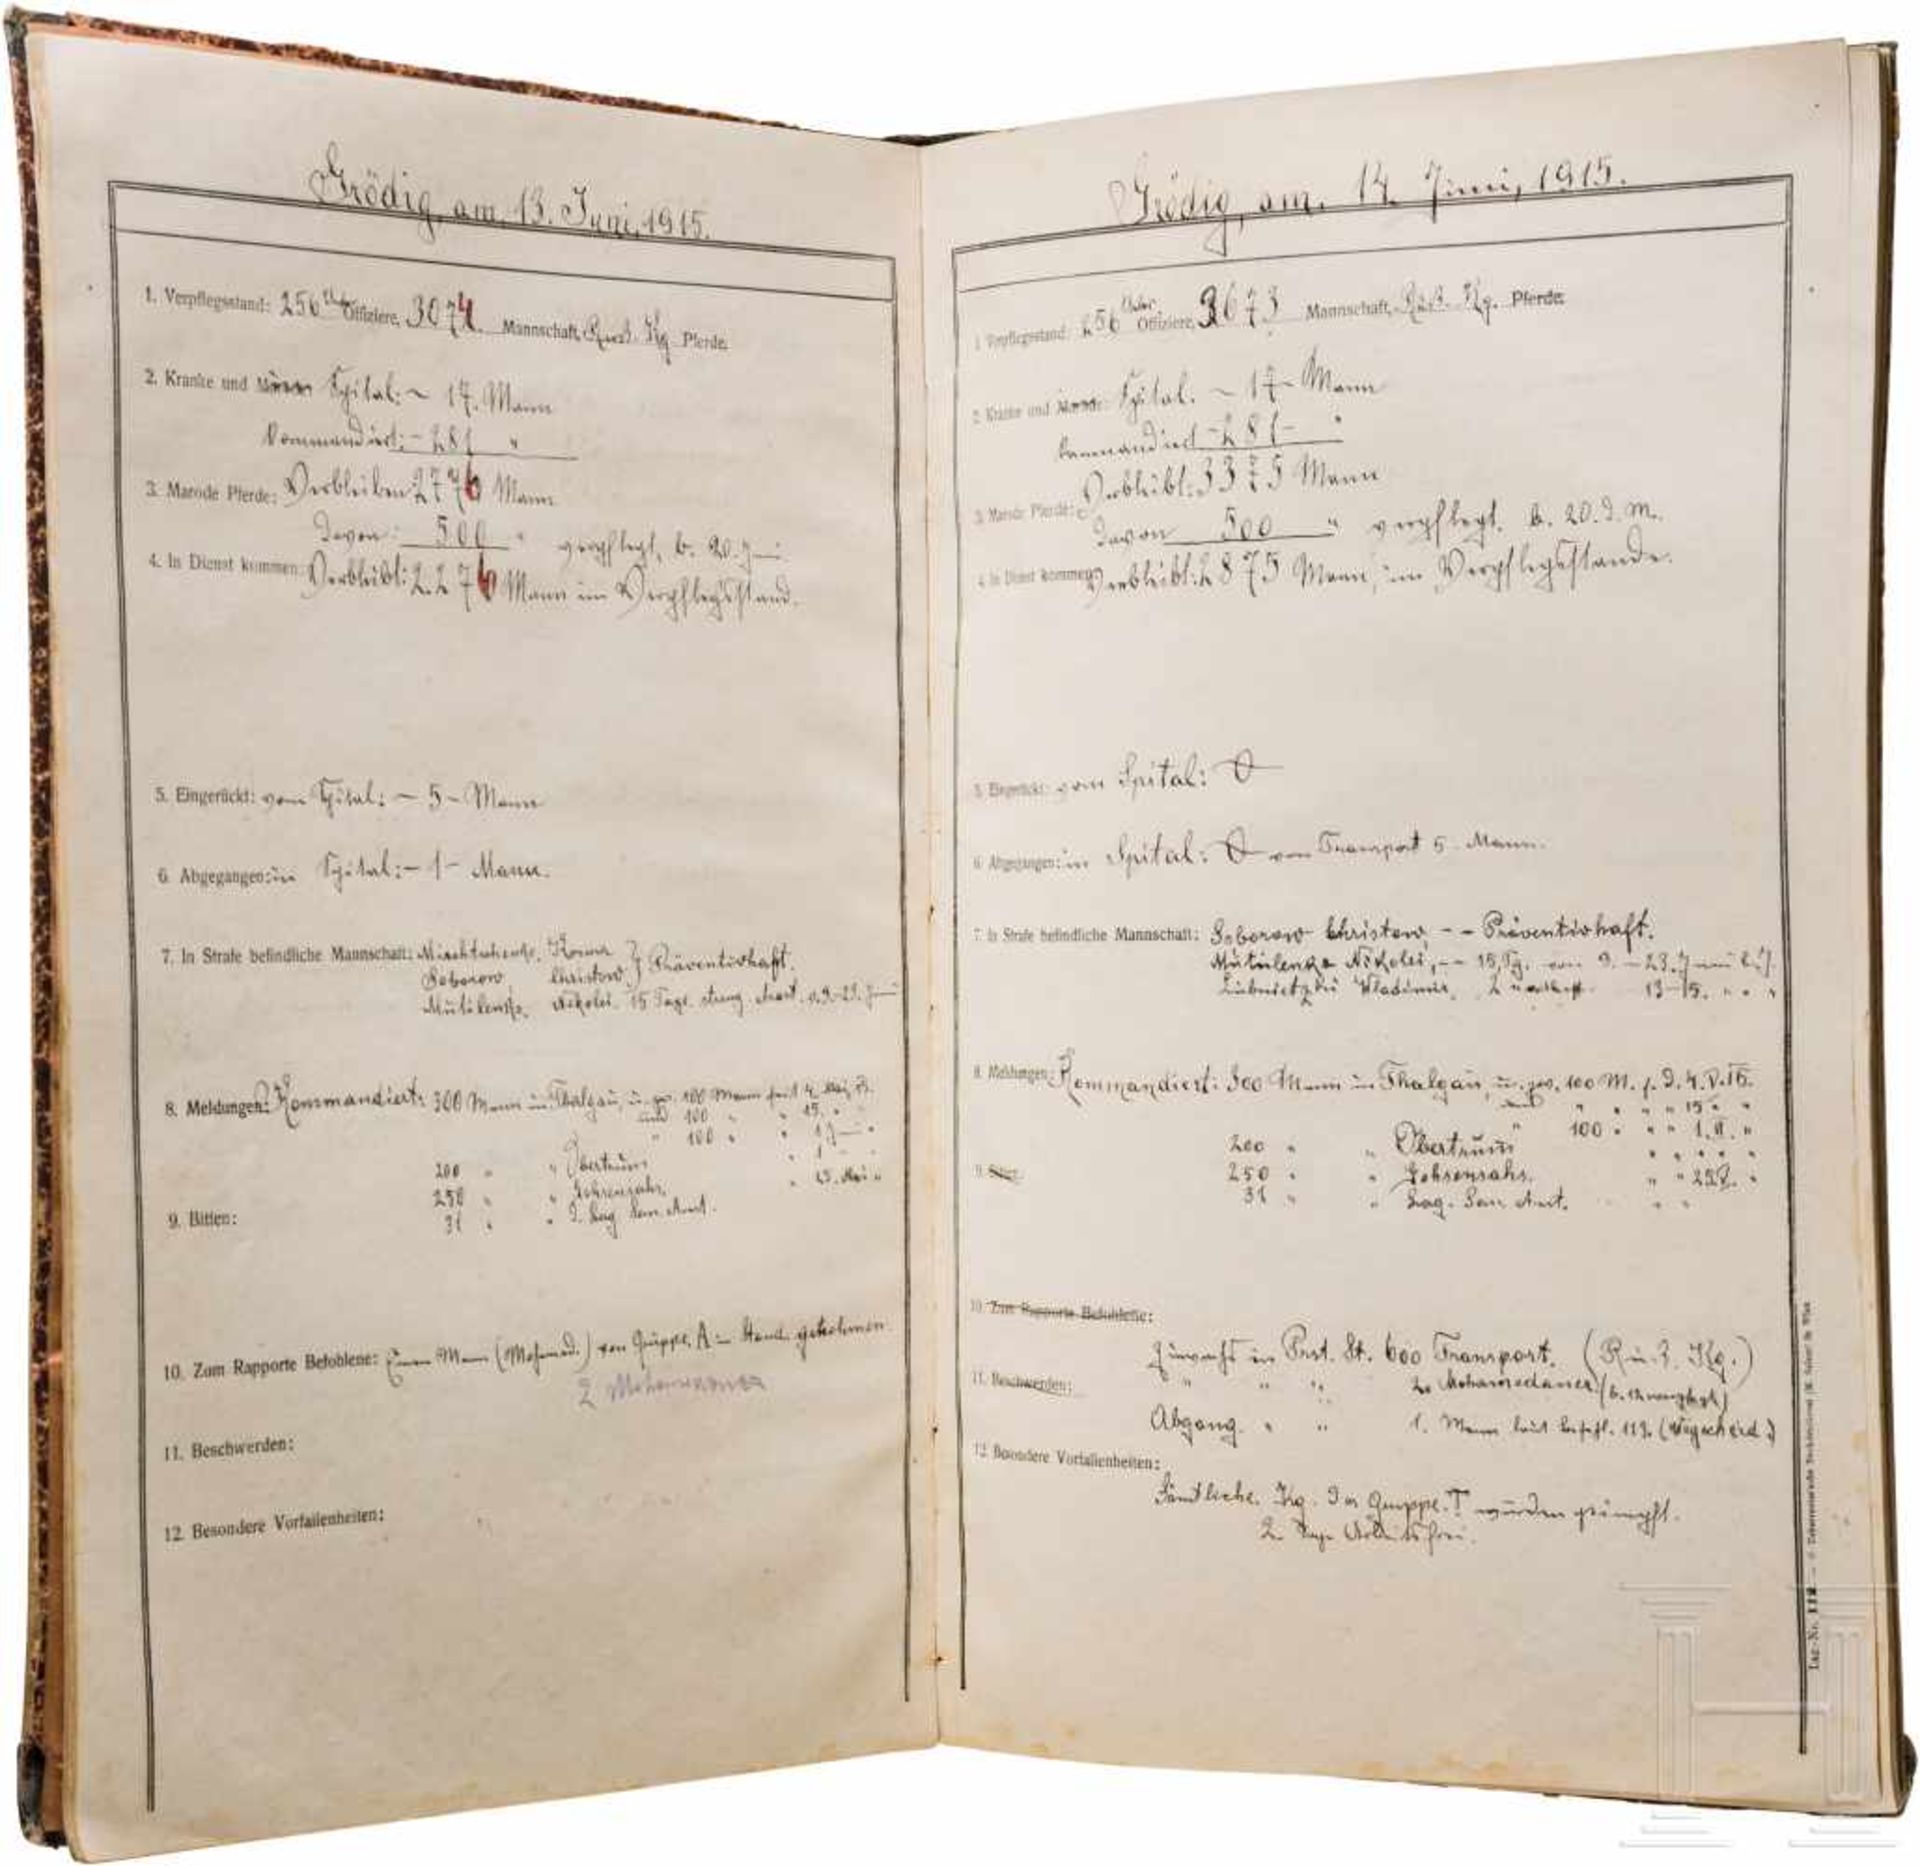 Grödig, am 13. Juni, 1915.
1. Verpflegsstand: 256 Unter Offiziere, 3074 Mannschaft, Russ. Kg. Pferde.
2. Kranke und Spital: – 17. Mann
Kommandiert: – 281 "
3. Marode Pferde: Verbleiben 2776 Mann
Davon: 500 " verpflegt, b. 20. Juni
4. In Dienst kommen: Verbleibt: 2276 Mann im Verpflegsstand.
5. Eingerückt: vom Spital: – 5 – Mann
6. Abgegangen: in Spital: – 1 – Mann.
7. In Strafe befindliche Mannschaft:
Soborow, Christow, } Präventivhaft.
Nikolei. 15 Tage streng. Arrest v. 9–23. Juni
8. Meldungen: Kommandiert: 300 Mann in Thalgau, u. zw. 100 Mann seit 4. Mai,
und 100 " " 15. "
" 100 " " 1 Juni "
200 " " Obertrum " 1 " "
250 " " " 25. Mai "
9. Bitten: 31 " "
10. Zum Rapporte Befohlene: Einen Mann (Mohamed.) von Gruppe A
2 Mohamedaner
11. Beschwerden:
12. Besondere Vorfallenheiten:
Grödig, am. 14. Juni, 1915.
1. Verpflegsstand: 256 Unter Offiziere, 3673 Mannschaft, Russ. Kg. Pferde.
2. Kranke und Marode: Spital. – 17 – Mann
Kommandiert – 281 – "
3. Marode Pferde: Verbleibt: 3375 Mann
Davon 500 " verpflegt. b. 20. d. M.
4. In Dienst kommen: Verbleibt: 2875 Mann, im Verpflegsstande.
5. Eingerückt: vom Spital: 0
6. Abgegangen: in Spital: 0 vom Transport 5 Mann.
7. In Strafe befindliche Mannschaft: Soborow Christow, – – Präventivhaft.
Nikolei, – – 15. Tg. von 9. – 23. Juni
Wladimir, 13–15. " " "
8. Meldungen: Kommandiert: 300 Mann in Thalgau, u. zw. 100 M. s. d. 4. V. 15.
und " " " " 15 " "
" 100 " " " 1. VI. "
200 " " Obertrum " " " "
9. Bitten: 250 " " " " 25.V. "
31 " " Lag. San. Anst. " "
10. Zum Rapporte Befohlene:
Zuwachs in Prst. St. 600 Transport. (Russ. Kg.)
11. Beschwerden: " " " 2 Mohamedaner
Abgang. " " 1. Mann laut Befehl. 119. (Wegscheid.)
12. Besondere Vorfallenheiten:
Sämtliche. Kg. der Gruppe. T wurden geimpft.
2 Tage Arbeitsfrei.
Lag.-Nr. 112